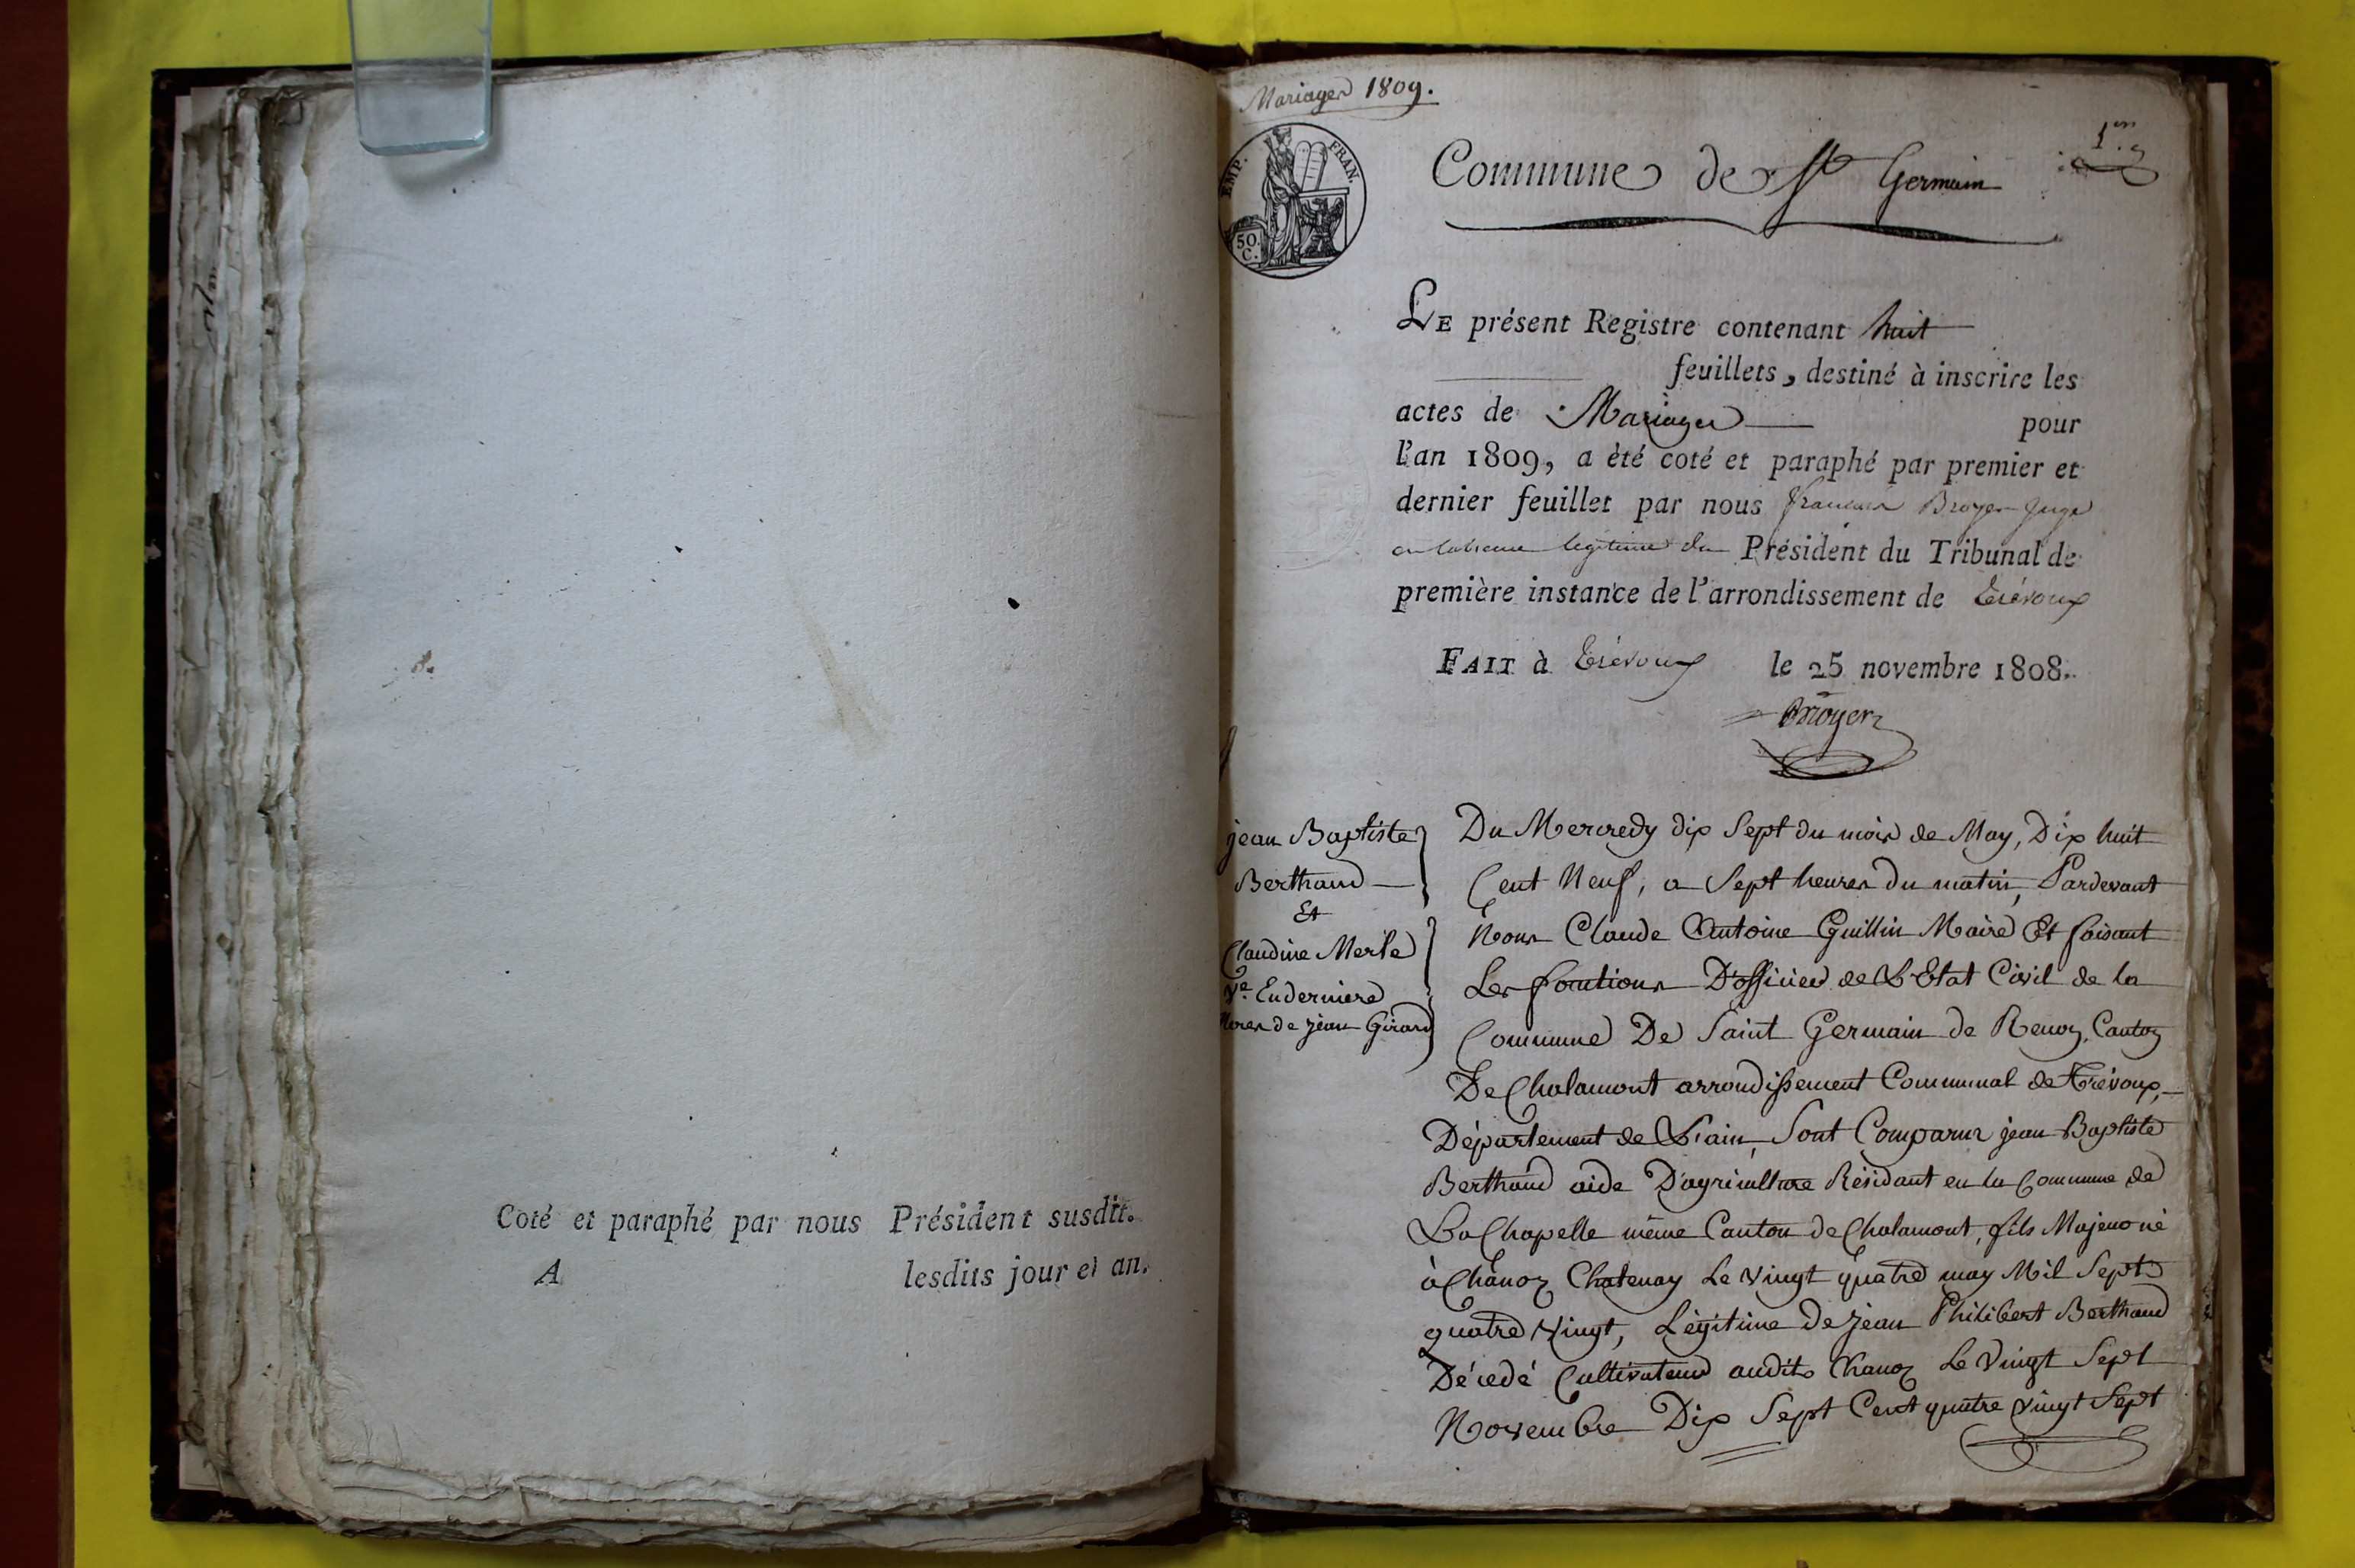 Coté et paraphé par nous Président susdit.
A lesdits jour et an.
Mariages 1809.
EMP. FRAN.
50. C.
1.er
Commune de St Germain
LE présent Registre contenant huit
feuillets, destiné à inscrire les
actes de Mariages pour
l'an 1809, a été coté et paraphé par premier et
dernier feuillet par nous francois Broyer juge
en labsence legitime du Président du Tribunal de
première instance de l'arrondissement de Trévoux
FAIT à Trévoux le 25 novembre 1808.
Broyer
jean Baptiste
Berthaud
Et
Claudine Merle
Ve. En derniere
Noces de jean Girard
Du Mercredy dix Sept du mois de May, Dix huit
Cent Neuf, a Sept heures du matin, Pardevant
Nous Claude Antoine Guillin Maire Et faisant
Les fonctions D'officier de L'Etat Civil de la
Commune De Saint Germain de Renon, Canton
De Chalamont arrondissement Communal de Trévoux,
Département de L'ain, Sont Comparus jean Baptiste
Berthaud aide D'agriculture Résidant en la Commune de
La Chapelle même Canton de Chalamont, fils Majeur né
à Chanoz Chatenay Le Vingt quatre may Mil Sept
quatre Vingt, Légitime de jean Philibert Berthaud
Décédé Cultivateur audit Chanoz Le Vingt Sept
Novembre Dix Sept Cent quatre Vingt Sept